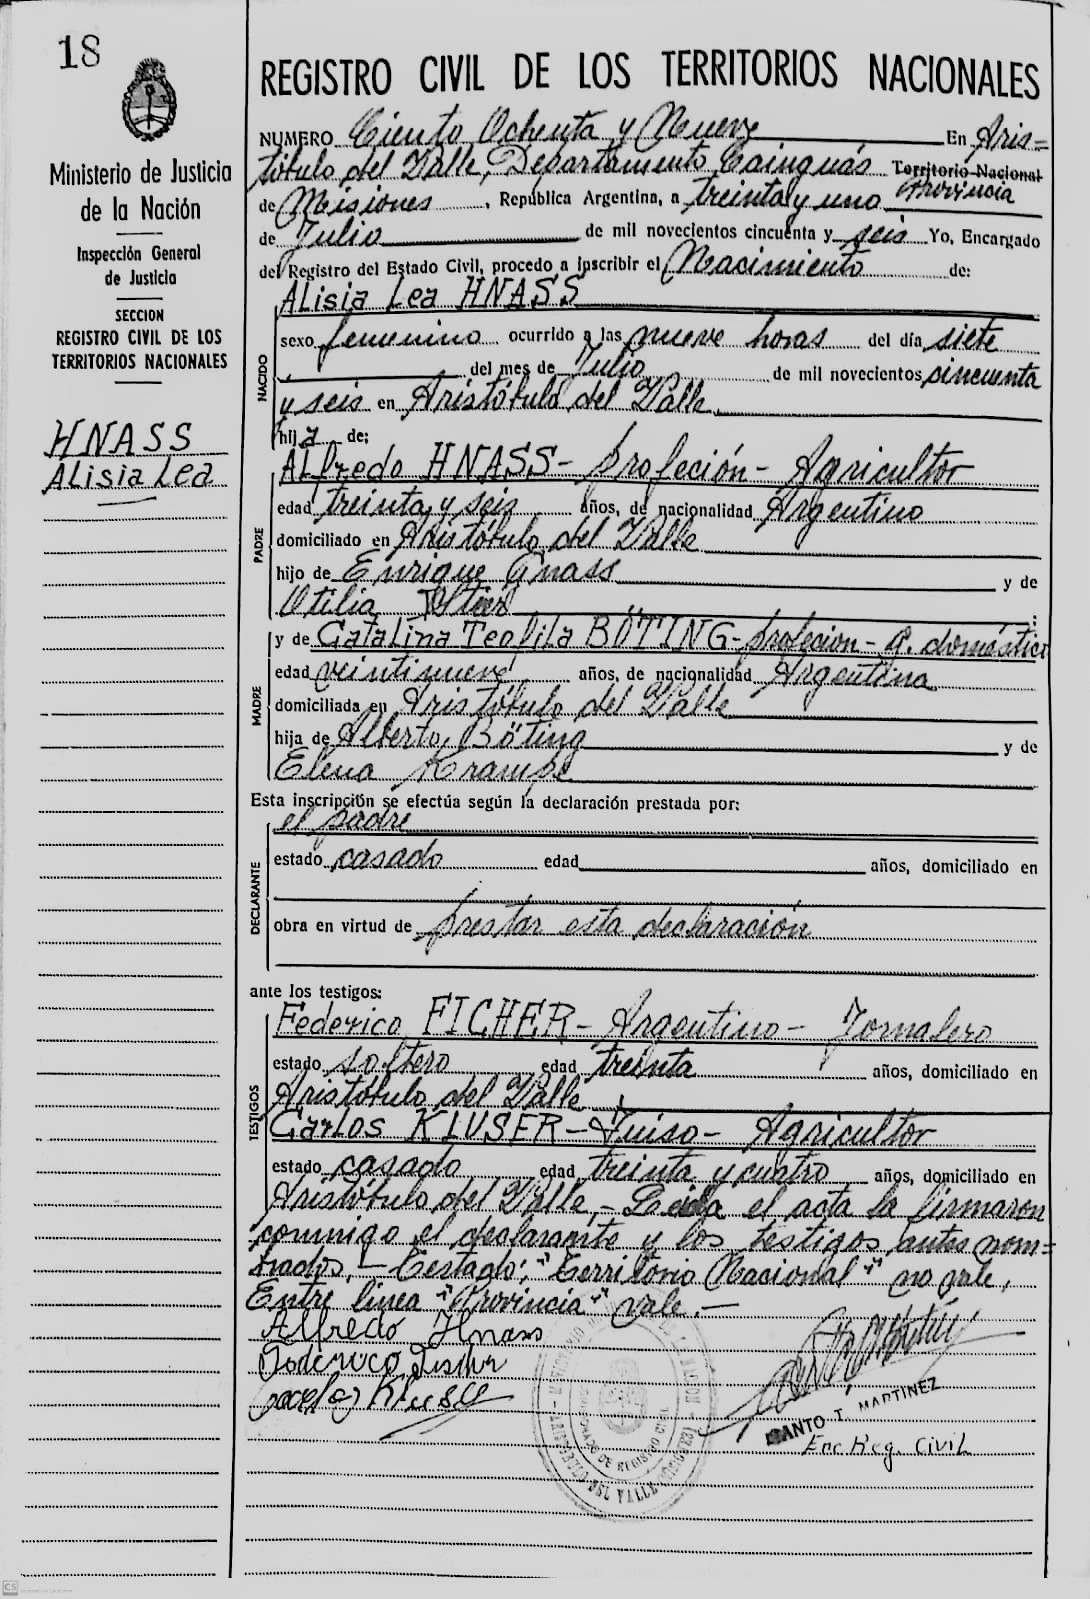 18
Ministerio de Justicia
de la Nación
Inspección General
de Justicia
SECCION
REGISTRO CIVIL DE LOS
TERRITORIOS NACIONALES
HNASS
Alisia Lea
REGISTRO CIVIL DE LOS TERRITORIOS NACIONALES
NUMERO Ciento Ochenta y Nueve En Aris=
tóbulo del Valle, Departamento Cainguás Territorio Nacional
Provincia
de Misiones, República Argentina, a treinta y uno
de Julio de mil novecientos cincuenta y seis Yo, Encargado
del Registro del Estado Civil, procedo a inscribir el Nacimiento de:
NACIDO
Alisia Lea HNASS
sexo femenino ocurrido a las nueve horas del día siete
del mes de Julio de mil novecientos sincuenta
y seis en Aristóbulo del Valle
hija de;
PADRE
Alfredo HNASS - profeción - Agricultor
edad treinta y seis años, de nacionalidad Argentino
domiciliado en Aristóbulo del Valle
hijo de Enrique Gnass y de
Otilia
MADRE
y de Catalina Teofila BÖTING - profecion - q. doméstico
edad veintinueve años, de nacionalidad Argentina
domiciliada en Aristóbulo del Valle
hija de Alberto Böting y de
Elena Krampe
Esta inscripción se efectúa según la declaración prestada por:
DECLARANTE
el padre
estado casado edad años, domiciliado en
obra en virtud de prestar esta declaración
ante los testigos:
TESTIGOS
Federico FICHER - Argentino - Jornalero
estado soltero edad treinta años, domiciliado en
Aristóbulo del Valle
Carlos KLUSER - Suiso - Agricultor
estado casado edad treinta y cuatro años, domiciliado en
Aristóbulo del Valle, - Leida el acta la firmaron
conmigo el declarante y los testigos antes nom=
brados, - Testado: "Territorio Nacional" no vale,
Entre linea "Provincia" vale. -
Alfredo Hnass
SANTO T. MARTINEZ
Enc Reg. Civil
CS